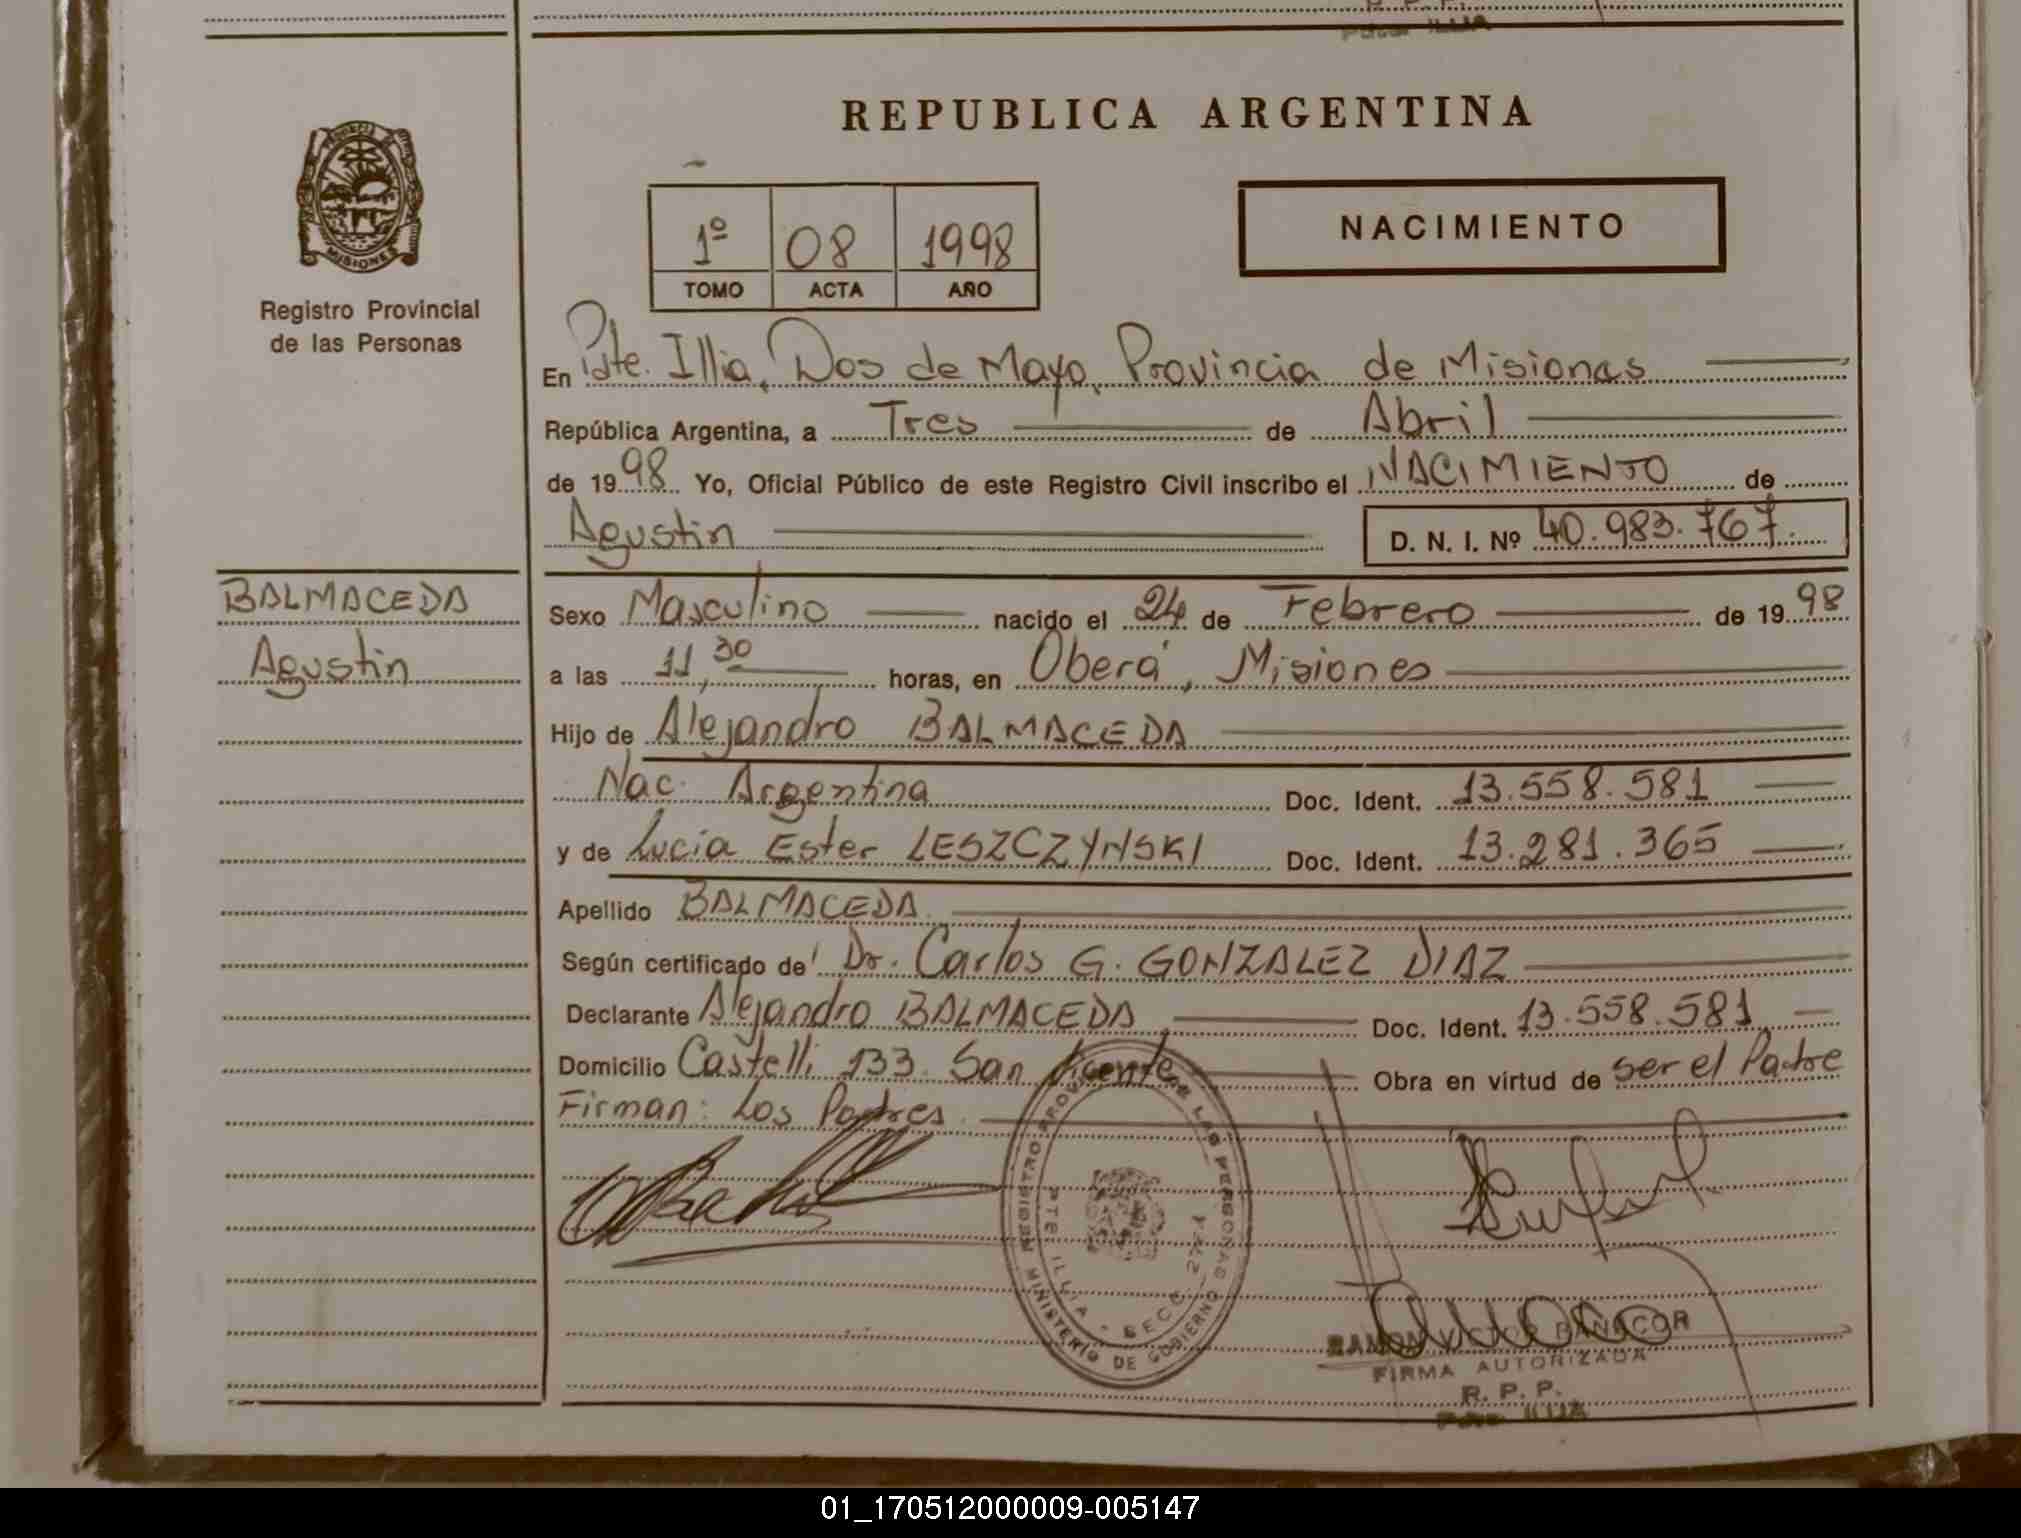 REPUBLICA ARGENTINA
PROVINCIA DE
MISIONES
Registro Provincial
de las Personas
1º 08 1998
TOMO ACTA AÑO
NACIMIENTO
En Pdte. Illia, Dos de Mayo, Provincia de Misiones
República Argentina, a Tres de Abril
de 1998 Yo, Oficial Público de este Registro Civil inscribo el NACIMIENTO de
Agustin D. N. I. Nº 40.983.767.
BALMACEDA
Agustin
Sexo Masculino nacido el 24 de Febrero de 1998
a las 11,30 horas, en Oberá, Misiones
Hijo de Alejandro BALMACEDA
Nac. Argentina Doc. Ident. 13.558.581
y de Lucia Ester LESZCZYNSKI Doc. Ident. 13.281.365
Apellido BALMACEDA
Según certificado de Dr. Carlos G. GONZALEZ DIAZ
Declarante Alejandro BALMACEDA Doc. Ident. 13.558.581
Domicilio Castelli 133. San Vicente Obra en virtud de ser el Padre
Firman: Los Padres
REGISTRO PROV. DE LAS PERSONAS
MINISTERIO DE GOBIERNO
PTE ILLIA - SECC.
RAMON VICTOR
FIRMA AUTORIZADA
R. P. P.
Pdte. ILLIA
01_170512000009-005147